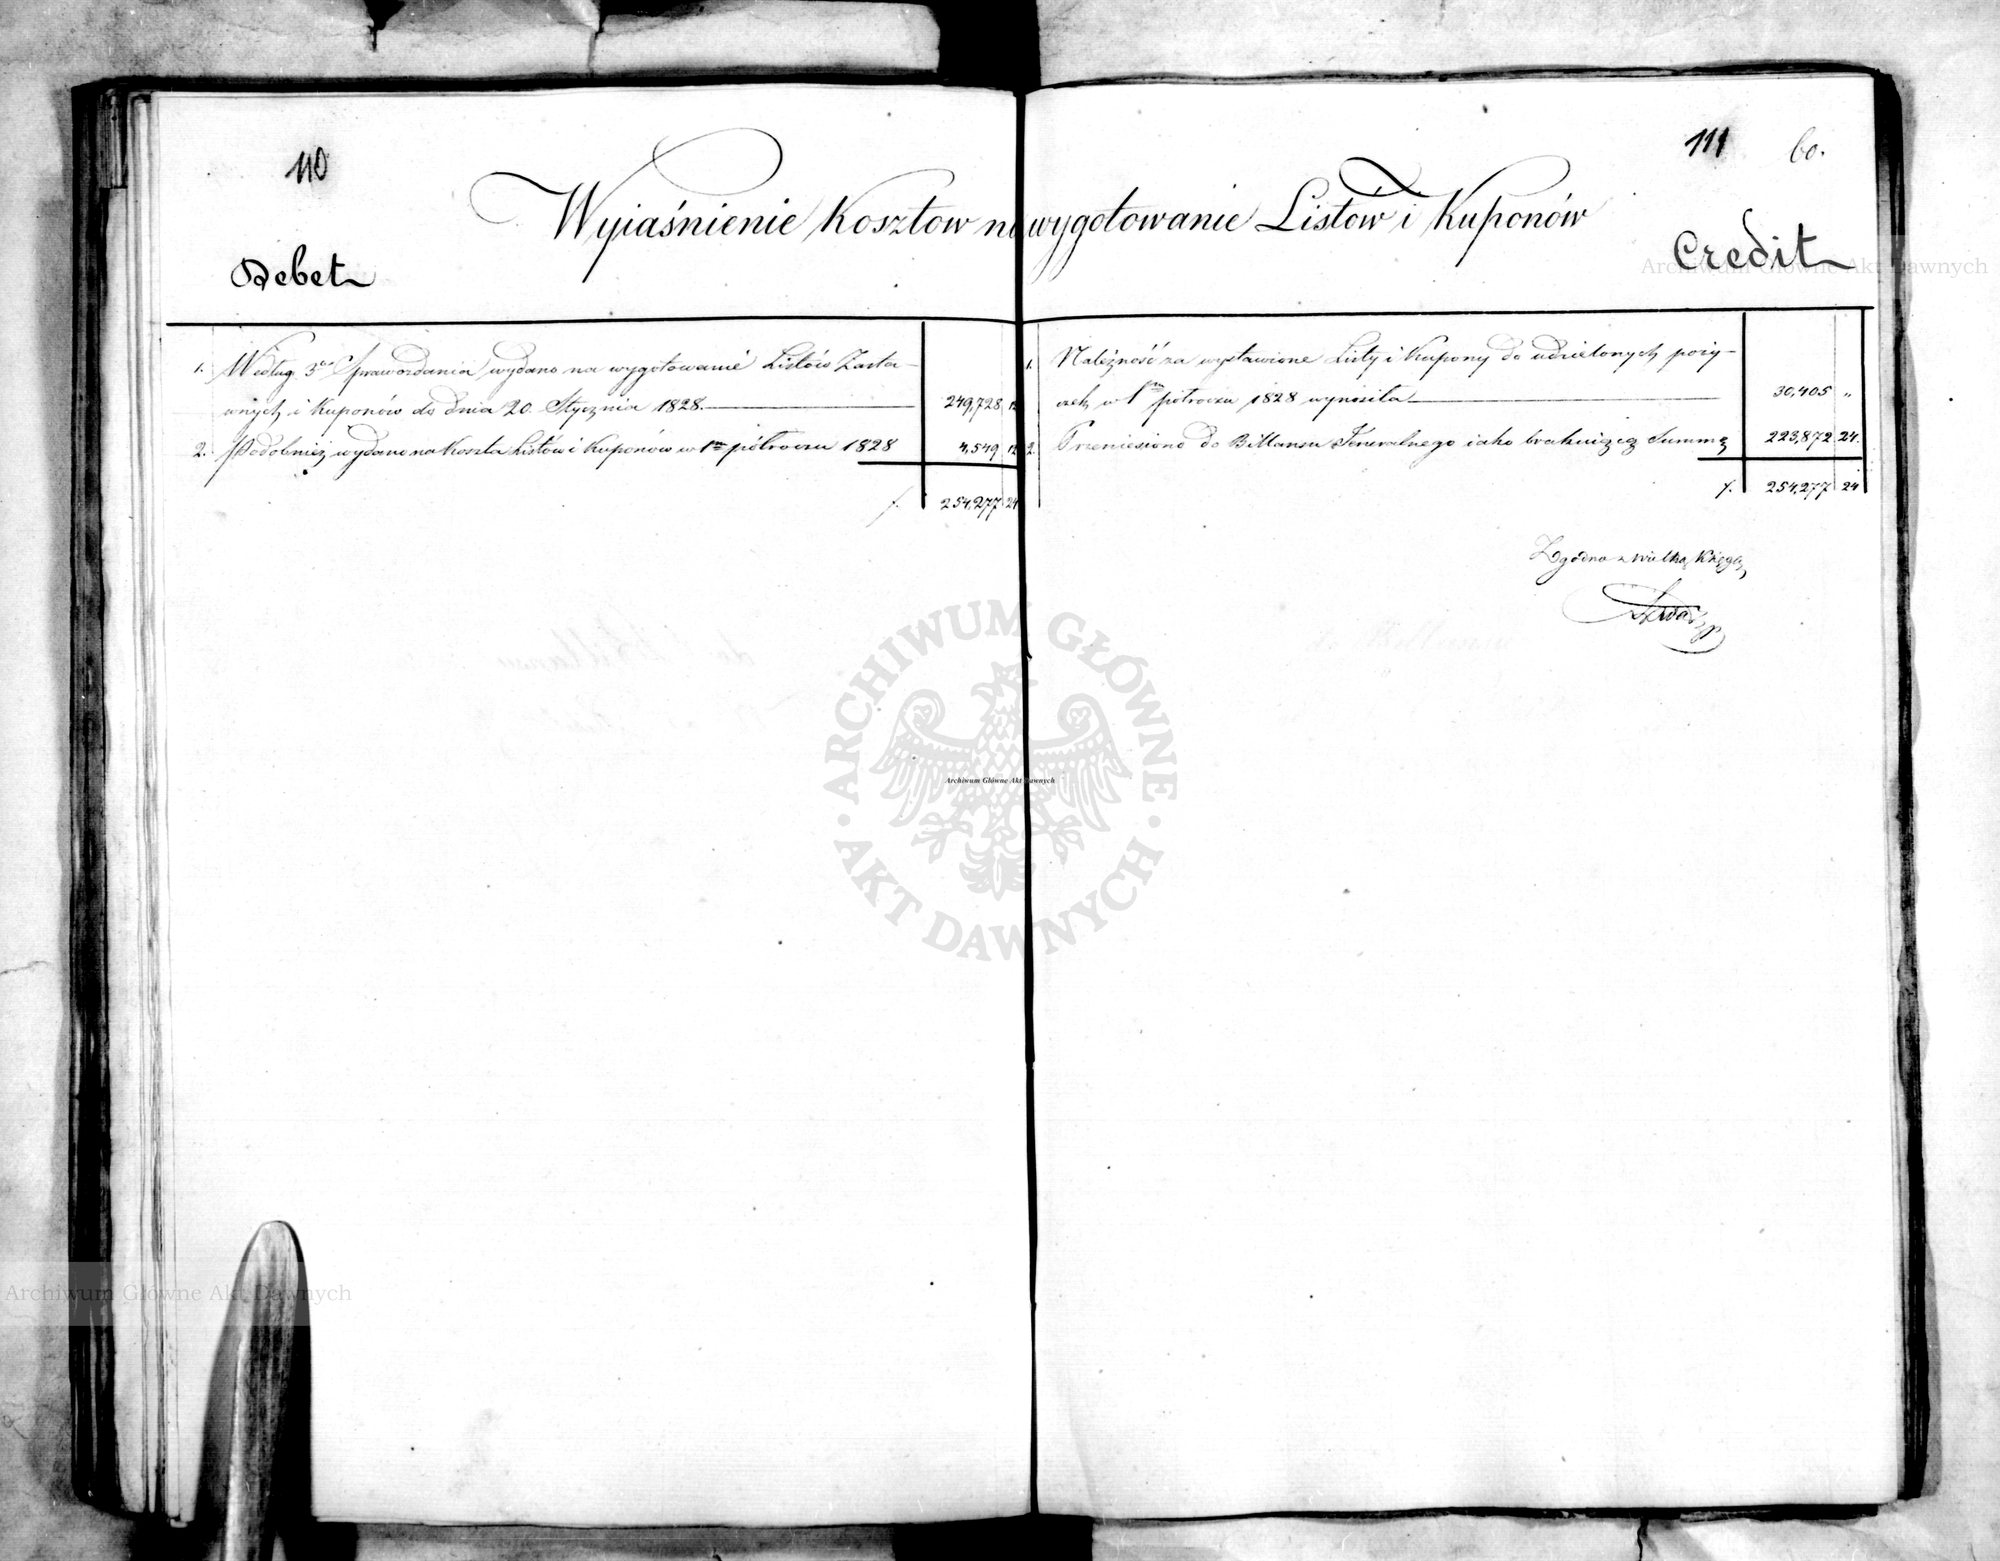 110
111 60.
Wyiaśnienie Kosztow na wygotowanie Listów i Kuponów
Debet
Credit
1. Według 3go Sprawozdania wydano na wygotowanié Listów Zasta-
wnych i Kuponów do dnia 20. Stycznia 1828. 249,728 12
2. Podobnież wydano na Koszta Listów i Kuponów w 1m półroczu 1828 4,549 12
f. 254,277 24
1. Należność za wystawione Listy i Kupony do udzielonych poży-
czek w 1m półroczu 1828 wynosiła 30,405 "
2. Przeniesiono do Billansu Jeneralnego iako brakuiącą Summę 223,872 24.
f. 254,277 24
Zgodno z Wielką Księgą
do Billansu
ARCHIWUM GŁÓWNE
AKT DAWNYCH
Archiwum Główne Akt Dawnych
Archiwum Główne Akt Dawnych
Archiwum Główne Akt Dawnych